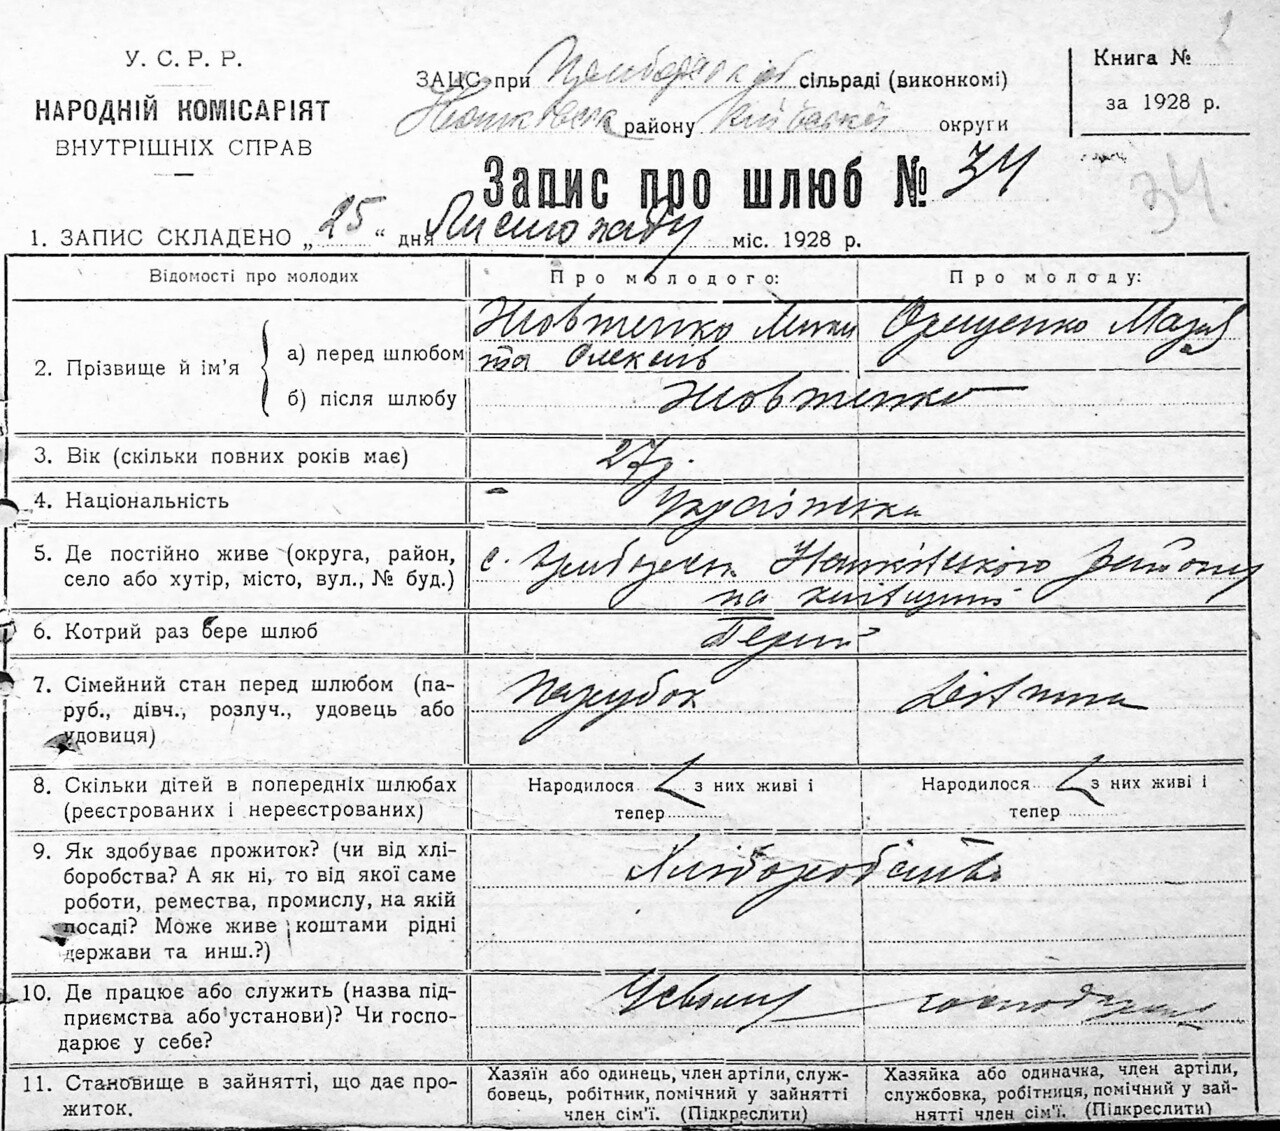 У. С. Р. Р.
НАРОДНІЙ КОМІСАРІЯТ
ВНУТРІШНІХ СПРАВ
ЗАЦС при сільраді (виконкомі)
району округи
Книга №
за 1928 р.
Запис про шлюб № 34
34.
1. ЗАПИС СКЛАДЕНО „ 25 “ дня Листопаду міс. 1928 р.
Відомості про молодих
Про молодого:
Про молоду:
2. Прізвище й ім’я
а) перед шлюбом
б) після шлюбу
Жовтенко Мики
та Олексів
Орищенко Марія
Жовтенко
3. Вік (скільки повних років має)
27р.
4. Національність
Українська
5. Де постійно живе (округа, район,
село або хутір, місто, вул., № буд.)
с. району
на
6. Котрий раз бере шлюб
Перший
7. Сімейний стан перед шлюбом (па-
руб., дівч., розлуч., удовець або
удовиця)
Парубок
Дівчина
8. Скільки дітей в попередніх шлюбах
(реєстрованих і нереєстрованих)
Народилося з них живі і
тепер
Народилося з них живі і
тепер
9. Як здобуває прожиток? (чи від хлі-
боробства? А як ні, то від якої саме
роботи, ремества, промислу, на якій
посаді? Може живе коштами рідні
держави та инш.?)
Хліборобство
10. Де працює або служить (назва під-
приємства або установи)? Чи госпо-
дарює у себе?
У своему господарстві
11. Становище в зайнятті, що дає про-
житок.
Хазяїн або одинець, член артіли, служ-
бовець, робітник, помічний у зайнятті
член сім’ї. (Підкреслити)
Хазяйка або одиначка, член артіли,
службовка, робітниця, помічний у зай-
нятті член сім’ї. (Підкреслити)